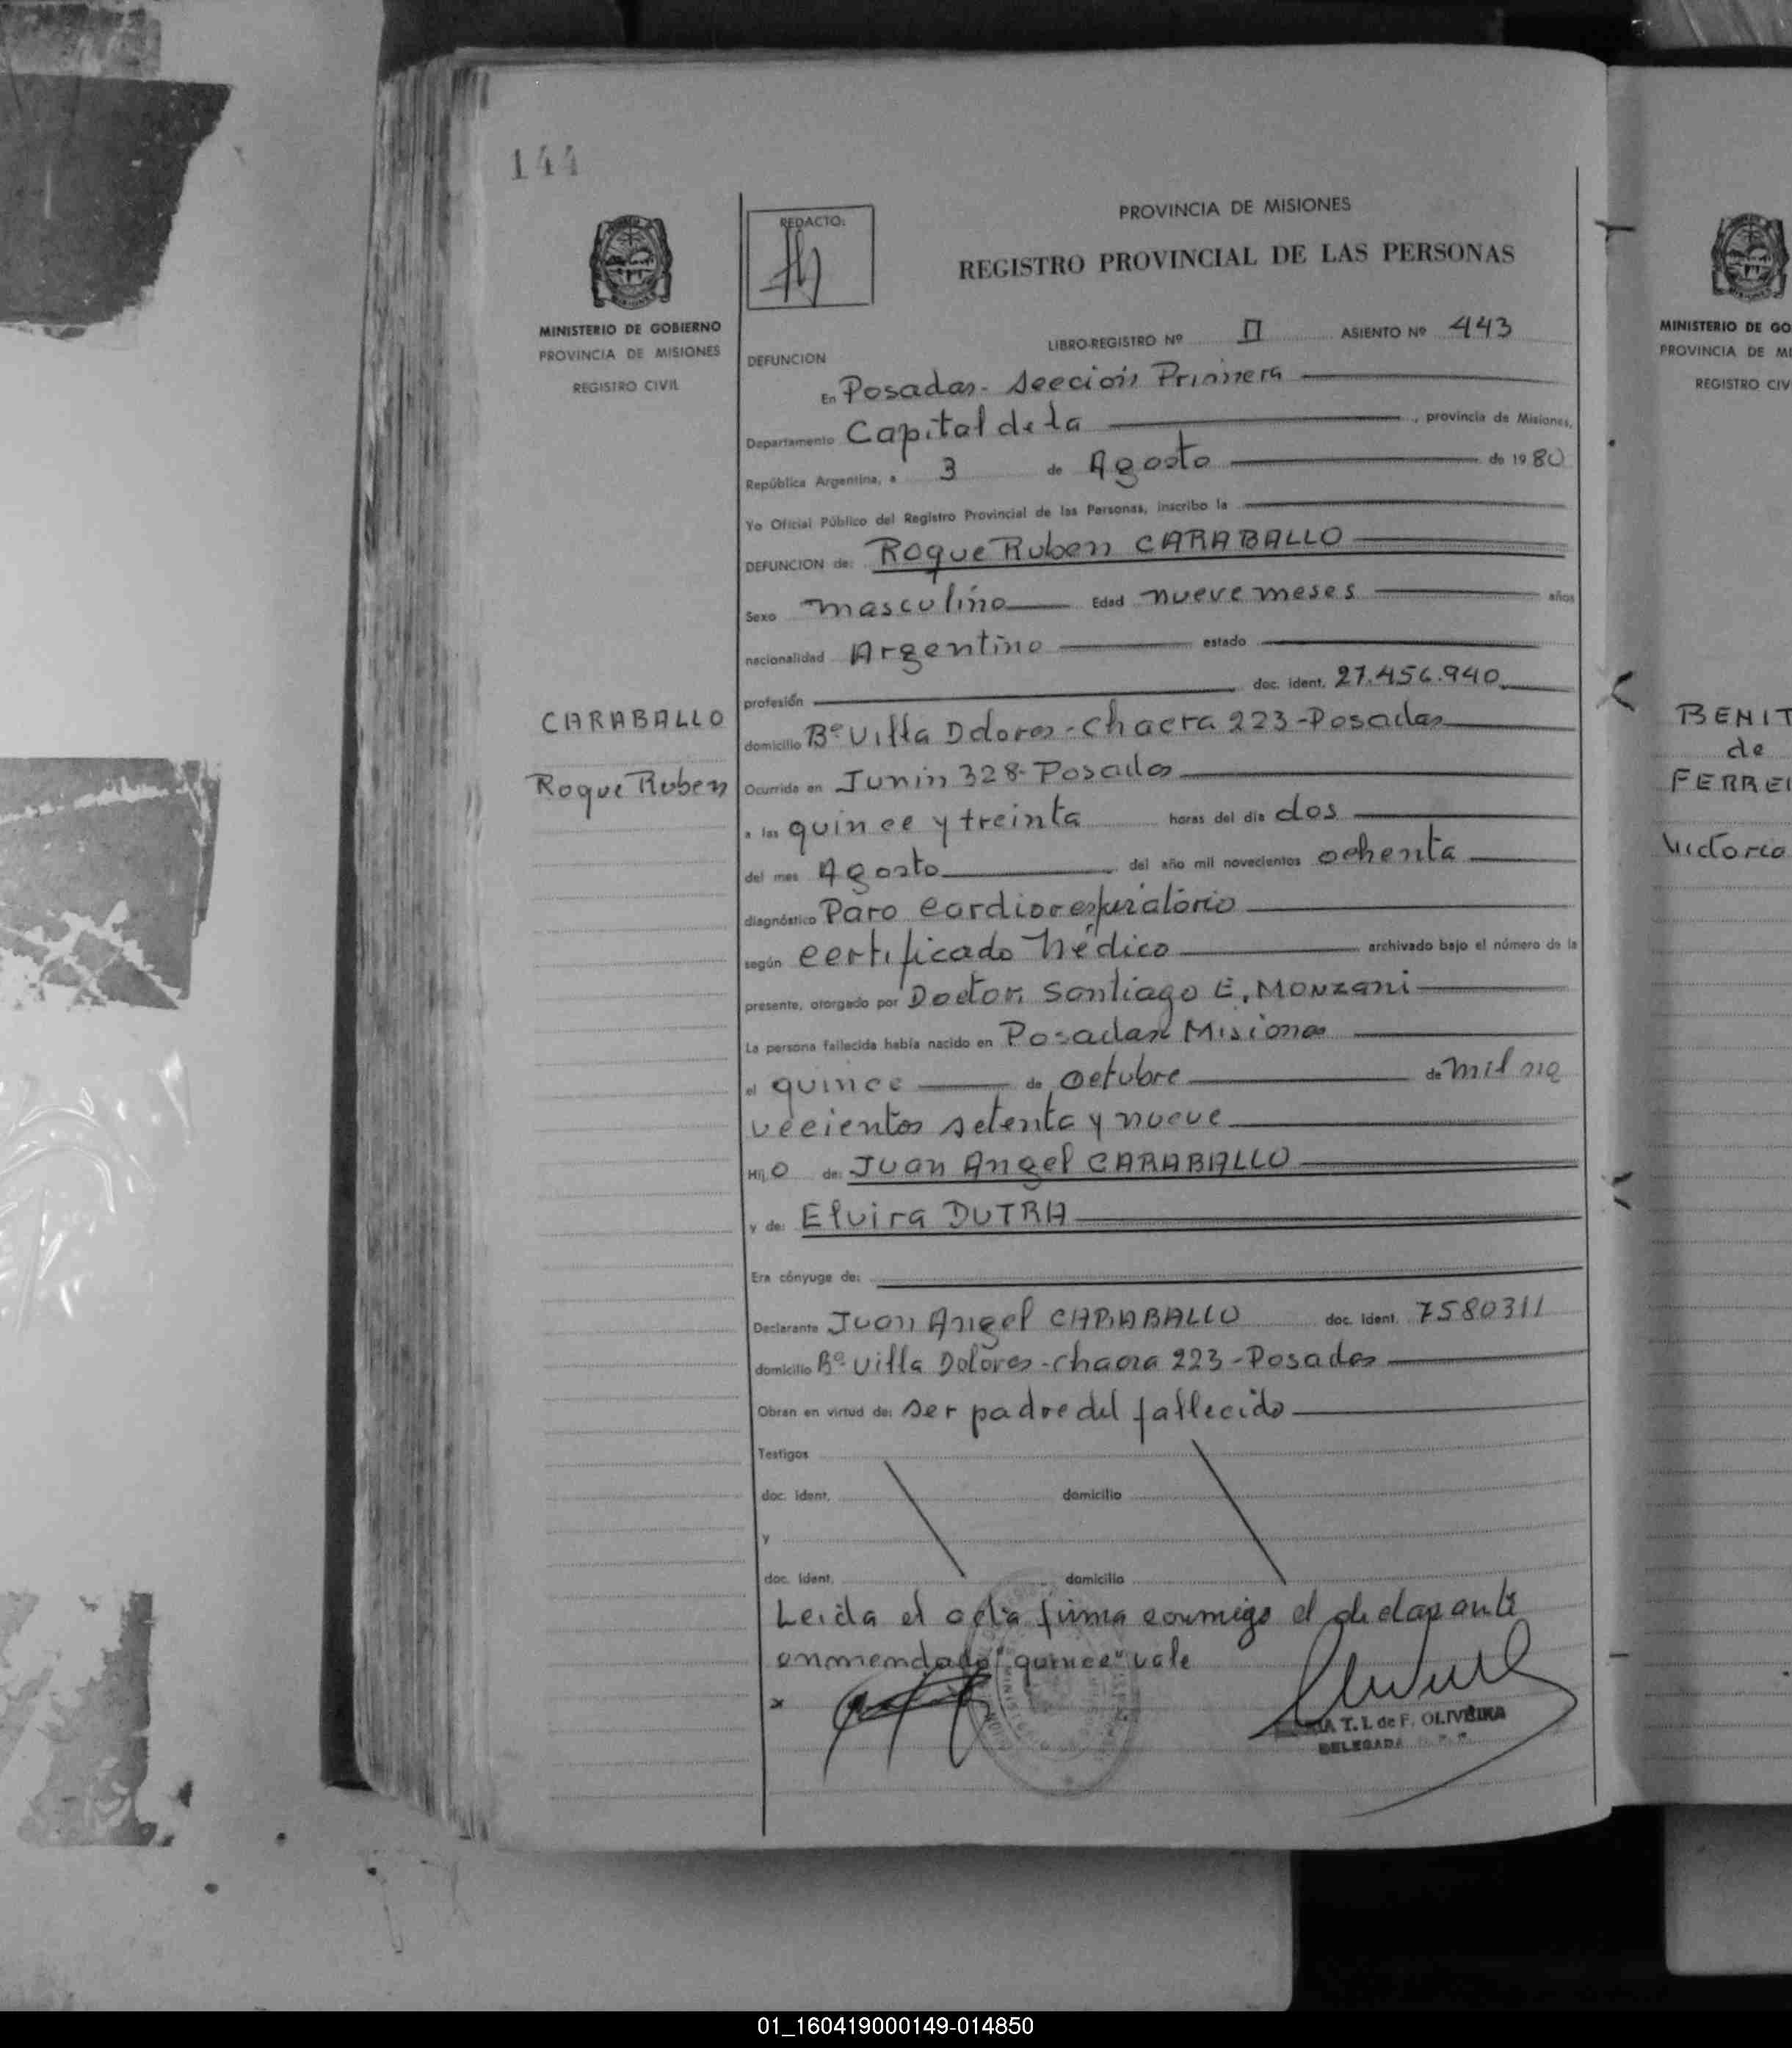 144
MINISTERIO DE GOBIERNO
PROVINCIA DE MISIONES
REGISTRO CIVIL
CARABALLO
Roque Ruben
REDACTO:
PROVINCIA DE MISIONES
REGISTRO PROVINCIAL DE LAS PERSONAS
LIBRO-REGISTRO Nº II ASIENTO Nº 443
DEFUNCION
En Posadas - Sección Primera
Departamento Capital de la , provincia de Misiones,
República Argentina, a 3 de Agosto de 1980
Yo Oficial Público del Registro Provincial de las Personas, inscribo la
DEFUNCION de: Roque Ruben CARABALLO
Sexo masculino Edad nueve meses años
nacionalidad Argentino estado
profesión doc. ident. 27.456.940
domicilio Bº Villa Dolores - Chacra 223 - Posadas
Ocurrida en Junin 328 - Posadas
a las quince y treinta horas del día dos
del mes Agosto del año mil novecientos ochenta
diagnóstico Paro cardiorespiratório
según certificado Médico archivado bajo el número de la
presente, otorgado por Doctor Santiago E. Monzani
La persona fallecida había nacido en Posadas Misiones
el quince de octubre de mil no
vecientos setenta y nueve
Hij o de: Juan Angel CARABALLO
y de: Elvira DUTRA
Era cónyuge de:
Declarante Juan Angel CARABALLO doc. ident. 7580311
domicilio Bº Villa Dolores - Chacra 223 - Posadas
Obran en virtud de: ser padre del fallecido
Testigos
doc. ident. domicilio
y
doc. ident. domicilio
Leida el acta firma conmigo el declarante
enmendado "quince" vale
x
T. I. de F. OLIVEIRA
DELEGADA
MINISTERIO DE GO
PROVINCIA DE MI
REGISTRO CIV
BENIT
de
FERREI
Victoria
01_160419000149-014850